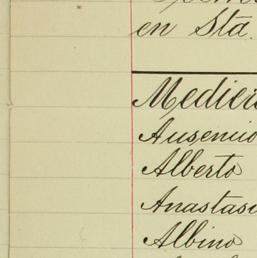 en Sta.
Medier
Ausencio
Alberto
Anastasi
Albino